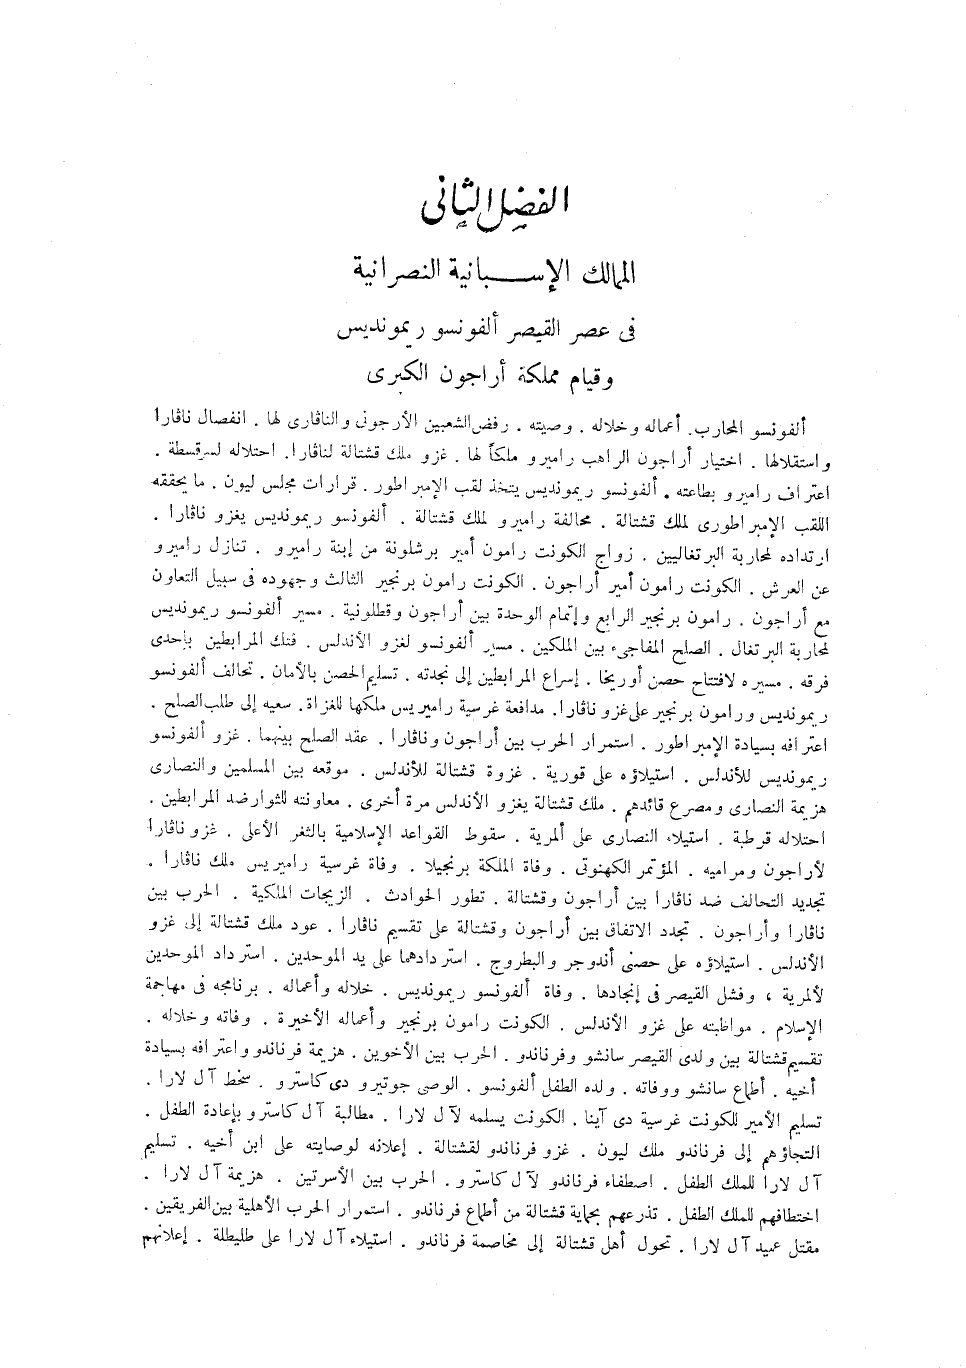 الفصل الثانى
الممالك الإسبانية النصرانية
فى عصر القيصر ألفونسو ريمونديس
وقيام مملكة أراجون الكبرى
ألفونسو المحارب. أعماله وخلاله . وصيته . رفض الشعبين الأرجونى والناڤارى لها . انفصال ناڤارا
واستقلالها . اختيار أراجون الراهب راميرو ملكاً لها . غزو ملك قشتالة لناڤارا. احتلاله لسرقسطة .
اعتراف راميرو بطاعته . ألفونسو ريمونديس يتخذ لقب الإمبراطور . قرارات مجلس ليون . ما يحققه
اللقب الإمبراطورى لملك قشتالة . محالفة راميرو لملك قشتالة . ألفونسو ريمونديس يغزو ناڤارا .
ارتداده لمحاربة البرتغاليين . زواج الكونت رامون أمير برشلونة من إبنة راميرو . تنازل راميرو
عن العرش . الكونت رامون أمير أراجون . الكونت رامون برنجير الثالث وجهوده فى سبيل التعاون
مع أراجون . رامون برنجير الرابع وإتمام الوحدة بين أراجون وقطلونية . مسير ألفونسو ريمونديس
لمحاربة البرتغال . الصلح المفاجىء بين الملكين . مسير ألفونسو لغزو الأندلس . فتك المرابطين بإحدى
فرقه . مسيره لافتتاح حصن أوريخا . إسراع المرابطين إلى نجدته . تسليم الحصن بالأمان . تحالف ألفونسو
ريمونديس ورامون برنجير على غزو ناڤارا. مدافعة غرسية راميريس ملكها للغزاة. سعيه إلى طلب الصلح .
اعترافه بسيادة الإمبراطور . استمرار الحرب بين أراجون وناڤارا . عقد الصلح بينهما . غزو ألفونسو
ريمونديس للأندلس . استيلاؤه على قورية . غزوة قشتالة للأندلس . موقعه بين المسلمين والنصارى
هزيمة النصارى ومصرع قائدهم . ملك قشتالة يغزو الأندلس مرة أخرى . معاونته للثوار ضد المرابطين .
احتلاله قرطبة . استيلاء النصارى على ألمرية . سقوط القواعد الإسلامية بالثغر الأعلى . غزو ناڤارا
لأراجون ومراميه . المؤتمر الكهنوتى . وفاة الملكة برنجيلا . وفاة غرسية راميريس ملك ناڤارا .
تجديد التحالف ضد ناڤارا بين أراجون وقشتالة . تطور الحوادث . الزيجات الملكية . الحرب بين
ناڤارا وأراجون . تجدد الاتفاق بين أراجون وقشتالة على تقسيم ناڤارا . عود ملك قشتالة إلى غزو
الأندلس . استيلاؤه على حصنى أندوجر والبطروج . استردادهما على يد الموحدين . استرداد الموحدين
لألمرية ، وفشل القيصر فى إنجادها . وفاة ألفونسو ريمونديس . خلاله وأعماله . برنامجه فى مهاجمة
الإسلام . مواظبته على غزو الأندلس . الكونت رامون برنجير وأعماله الأخيرة . وفاته وخلاله .
تقسيم قشتالة بين ولدى القيصر سانشو وفرناندو . الحرب بين الأخوين . هزيمة فرناندو واعترافه بسيادة
أخيه . أطماع سانشو ووفاته . ولده الطفل ألفونسو . الوصى جوتيرو دى كاسترو . سخط آل لارا .
تسليم الأمير للكونت غرسية دى آينا . الكونت يسلمه لآل لارا . مطالبة آل كاسترو بإعادة الطفل .
التجاؤهم إلى فرناندو ملك ليون . غزو فرناندو لقشتالة . إعلانه لوصايته على ابن أخيه . تسليم
آل لارا للملك الطفل . اصطفاء فرناندو لآل كاسترو . الحرب بين الأسرتين . هزيمة آل لارا .
اختطافهم للملك الطفل . تذرعهم بحماية قشتالة من أطماع فرناندو . استمرار الحرب الأهلية بين الفريقين .
مقتل عميد آل لارا . تحول أهل قشتالة إلى مخاصمة فرناندو . استيلاء آل لارا على طليطلة . إعلانهم